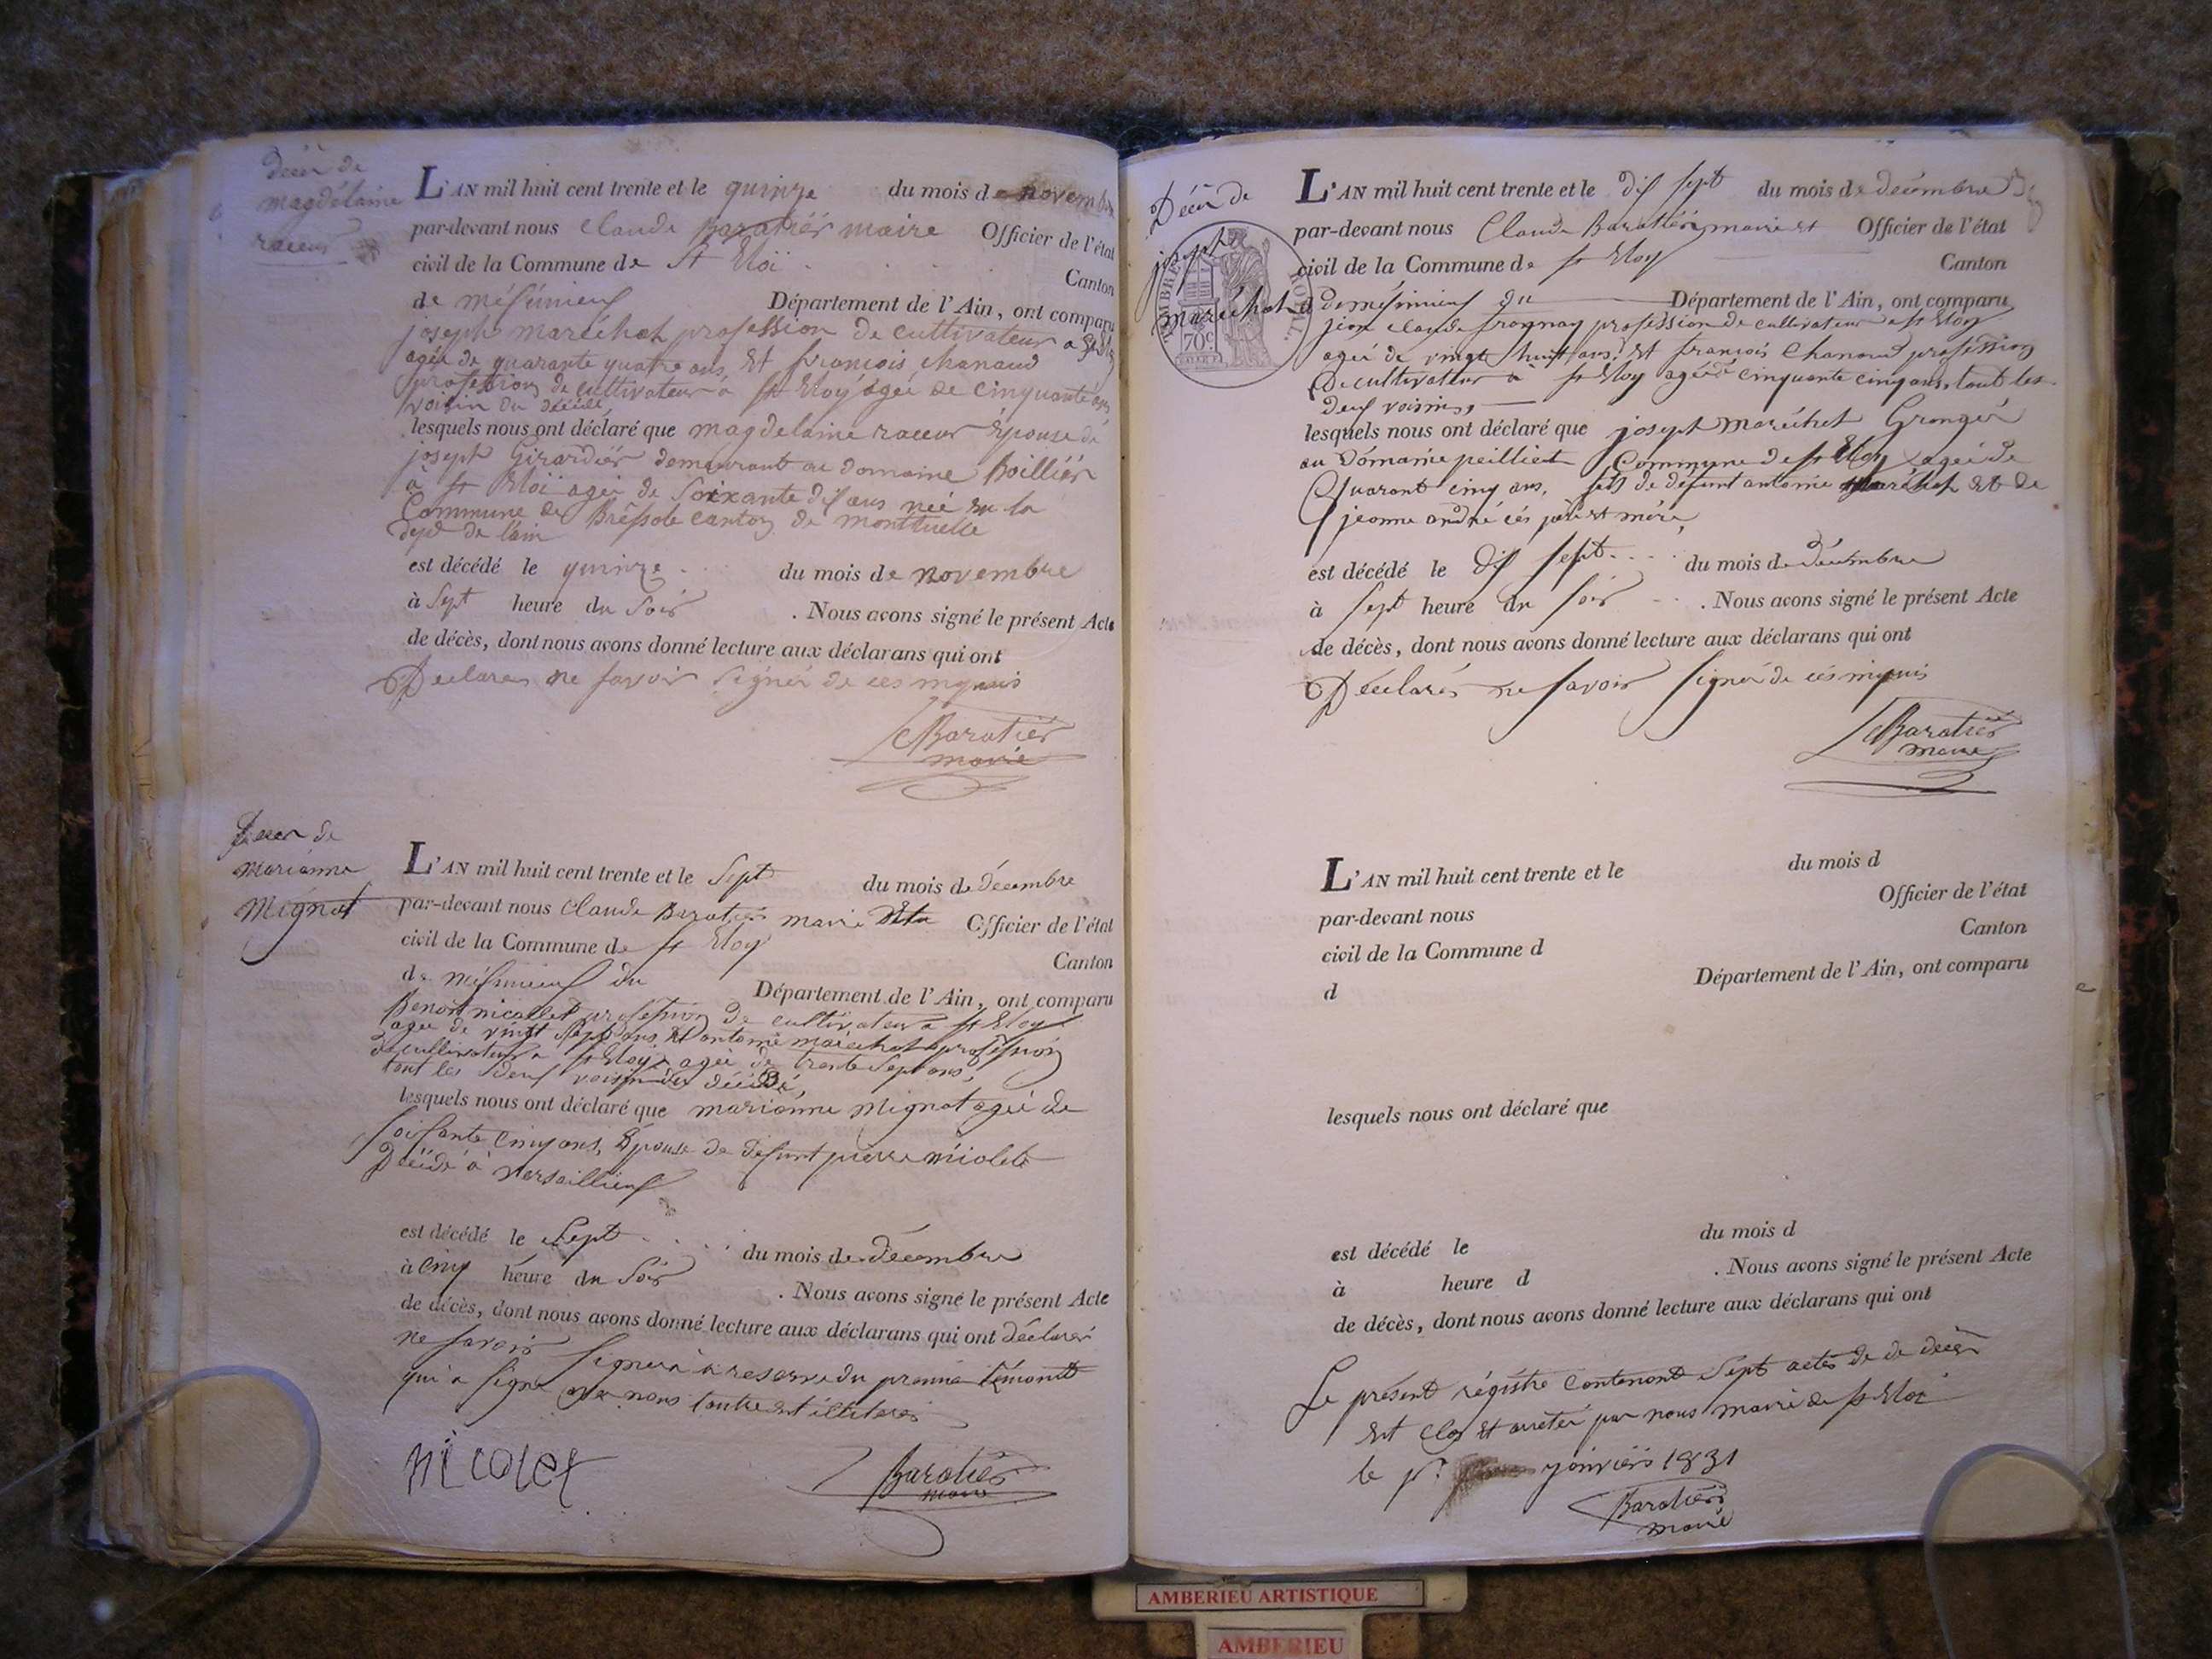 Décès de
magdelaine
raceur
L'AN mil huit cent trente et le quinze du mois de novembre
par-devant nous Claude Baratiér maire Officier de l'état
civil de la Commune de St Eloï Canton
de mésimieux Département de l'Ain, ont comparu
joseph maréchat profession de cultivateur a
agée de quarante quatre ans Et françois chanaud
profession de cultivateur à St Eloy agée de cinquante ans
voisin du décédé
lesquels nous ont déclaré que magdelaine raceur Épouse de
joseph Girardiér demeurant au domaine
à St Eloï agée de Soixante dix ans née en la
Commune de Bressole canton de montluelle
dept de l'ain
est décédé le quinze du mois de novembre
à Sept heure du Soir . Nous avons signé le présent Acte
de décès, dont nous avons donné lecture aux déclarans qui ont
Déclarer ne savoir Signér de ces
C Baratiér
maire
Décès de
marianne
Mignat
L'AN mil huit cent trente et le Sept du mois de décembre
par-devant nous Claude Baratier maire Officier de l'état
civil de la Commune de St Eloy Canton
de mésimieux du Département de l'Ain, ont comparu
Benoit nicollet profession de cultivateur a St Eloy
agée de vingt Sept ans Et antoine maréchat profession
de cultivateur a St Eloy agée de trente Sept ans,
tout les deux voisin du décédé,
lesquels nous ont déclaré que marianne Mignat agée de
soixante cinq ans, Épouse de defunt pierre
Décédé à Versaillieux
est décédé le Sept du mois de décembre
à cinq heure du Soir . Nous avons signé le présent Acte
de décès, dont nous avons donné lecture aux déclarans qui ont déclarér
ne savoir Signer à la reserve du premie
qui a signé
nicolet
Baratiér
maire
Décès de
joseph
maréchat
TIMBRE ROYAL
70c
L'AN mil huit cent trente et le dix sept du mois de décembre
par-devant nous Claude Baratiér maire et Officier de l'état
civil de la Commune de St Eloy Canton
de mésimieux du Département de l'Ain, ont comparu
jean claude profession de cultivateur a St Eloy
agée de vingt huit ans, Et françois Chanaud profession
de cultivateur a St Eloy agée de cinquante cinq ans, tout les
deux voisins,
lesquels nous ont déclaré que joseph maréchat Grangér
au Domaine peilliet Commune de St Eloy agée de
Quarant cinq ans, fils de défunt antoine maréchat Et de
jeanne andré cés père et mère,
est décédé le dix sept du mois de décembre
à sept heure du soir . Nous avons signé le présent Acte
de décès, dont nous avons donné lecture aux déclarans qui ont
Déclarés ne savoir Signér de cés
C Baratiér
maire
L'AN mil huit cent trente et le du mois d
par-devant nous Officier de l'état
civil de la Commune d Canton
d Département de l'Ain, ont comparu
lesquels nous ont déclaré que
est décédé le du mois d
à heure d . Nous avons signé le présent Acte
de décès, dont nous avons donné lecture aux déclarans qui ont
Le présent régistre contenant Sept actes de de décès
Est clos Et arretér par nous maire de St Eloi
le pr. janviér 1831
Baratiér
maire
AMBERIEU ARTISTIQUE
AMBERIEU